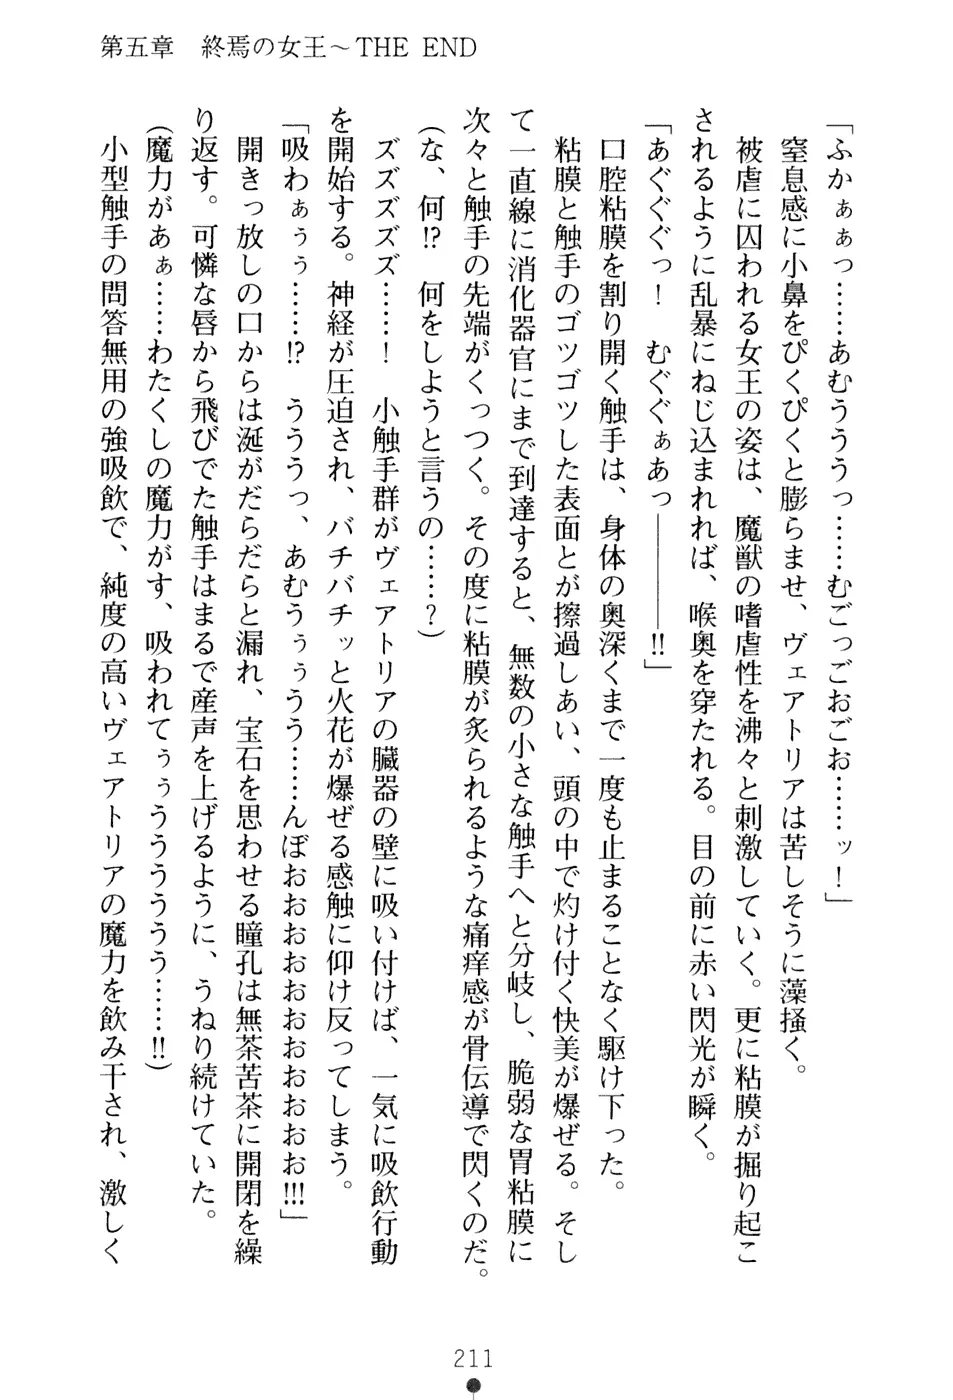 第五章　終焉の女王～THE END
「ふかぁぁっ……あむうううっ……むごっごおごお……ッ！」
　窒息感に小鼻をぴくぴくと膨らませ、ヴェアトリアは苦しそうに藻掻く。
　被虐に囚われる女王の姿は、魔獣の嗜虐性を沸々と刺激していく。更に粘膜が掘り起こ
されるように乱暴にねじ込まれれば、喉奥を穿たれる。目の前に赤い閃光が瞬く。
「あぐぐぐっ！　むぐぐぁあっ――――!!」
　口腔粘膜を割り開く触手は、身体の奥深くまで一度も止まることなく駆け下った。
　粘膜と触手のゴツゴツした表面とが擦過しあい、頭の中で灼け付く快美が爆ぜる。そし
て一直線に消化器官にまで到達すると、無数の小さな触手へと分岐し、脆弱な胃粘膜に
次々と触手の先端がくっつく。その度に粘膜が炙られるような痛痒感が骨伝導で閃くのだ。
（な、何!?　何をしようと言うの……？）
　ズズズズ……！　小触手群がヴェアトリアの臓器の壁に吸い付けば、一気に吸飲行動
を開始する。神経が圧迫され、バチバチッと火花が爆ぜる感触に仰け反ってしまう。
「吸わぁぅぅ……!?　うううっ、あむうぅぅうう……んぼおおおおおおおおおお!!!」
　開きっ放しの口からは涎がだらだらと漏れ、宝石を思わせる瞳孔は無茶苦茶に開閉を繰
り返す。可憐な唇から飛びでた触手はまるで産声を上げるように、うねり続けていた。
（魔力があぁ……わたくしの魔力がす、吸われてぅぅううううう……!!）
　小型触手の問答無用の強吸飲で、純度の高いヴェアトリアの魔力を飲み干され、激しく
211